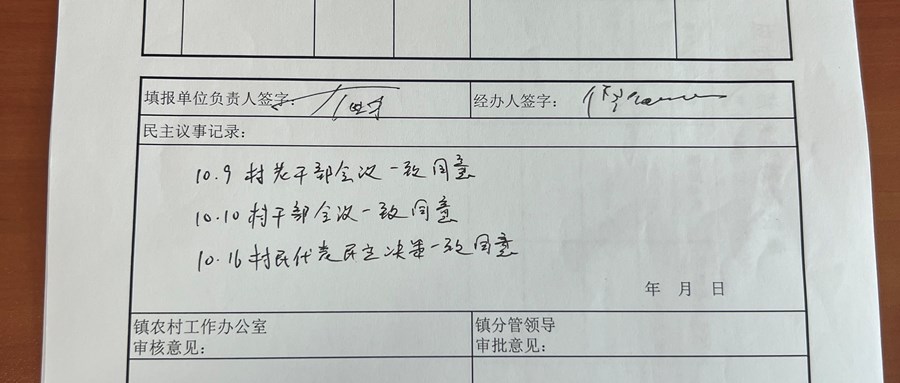 填报单位负责人签字：
经办人签字：
民主议事记录：
10.9 村老干部会议一致同意
10.10 村干部会议一致同意
10.16 村民代表民主决策一致同意
年 月 日
镇农村工作办公室
审核意见：
镇分管领导
审批意见：